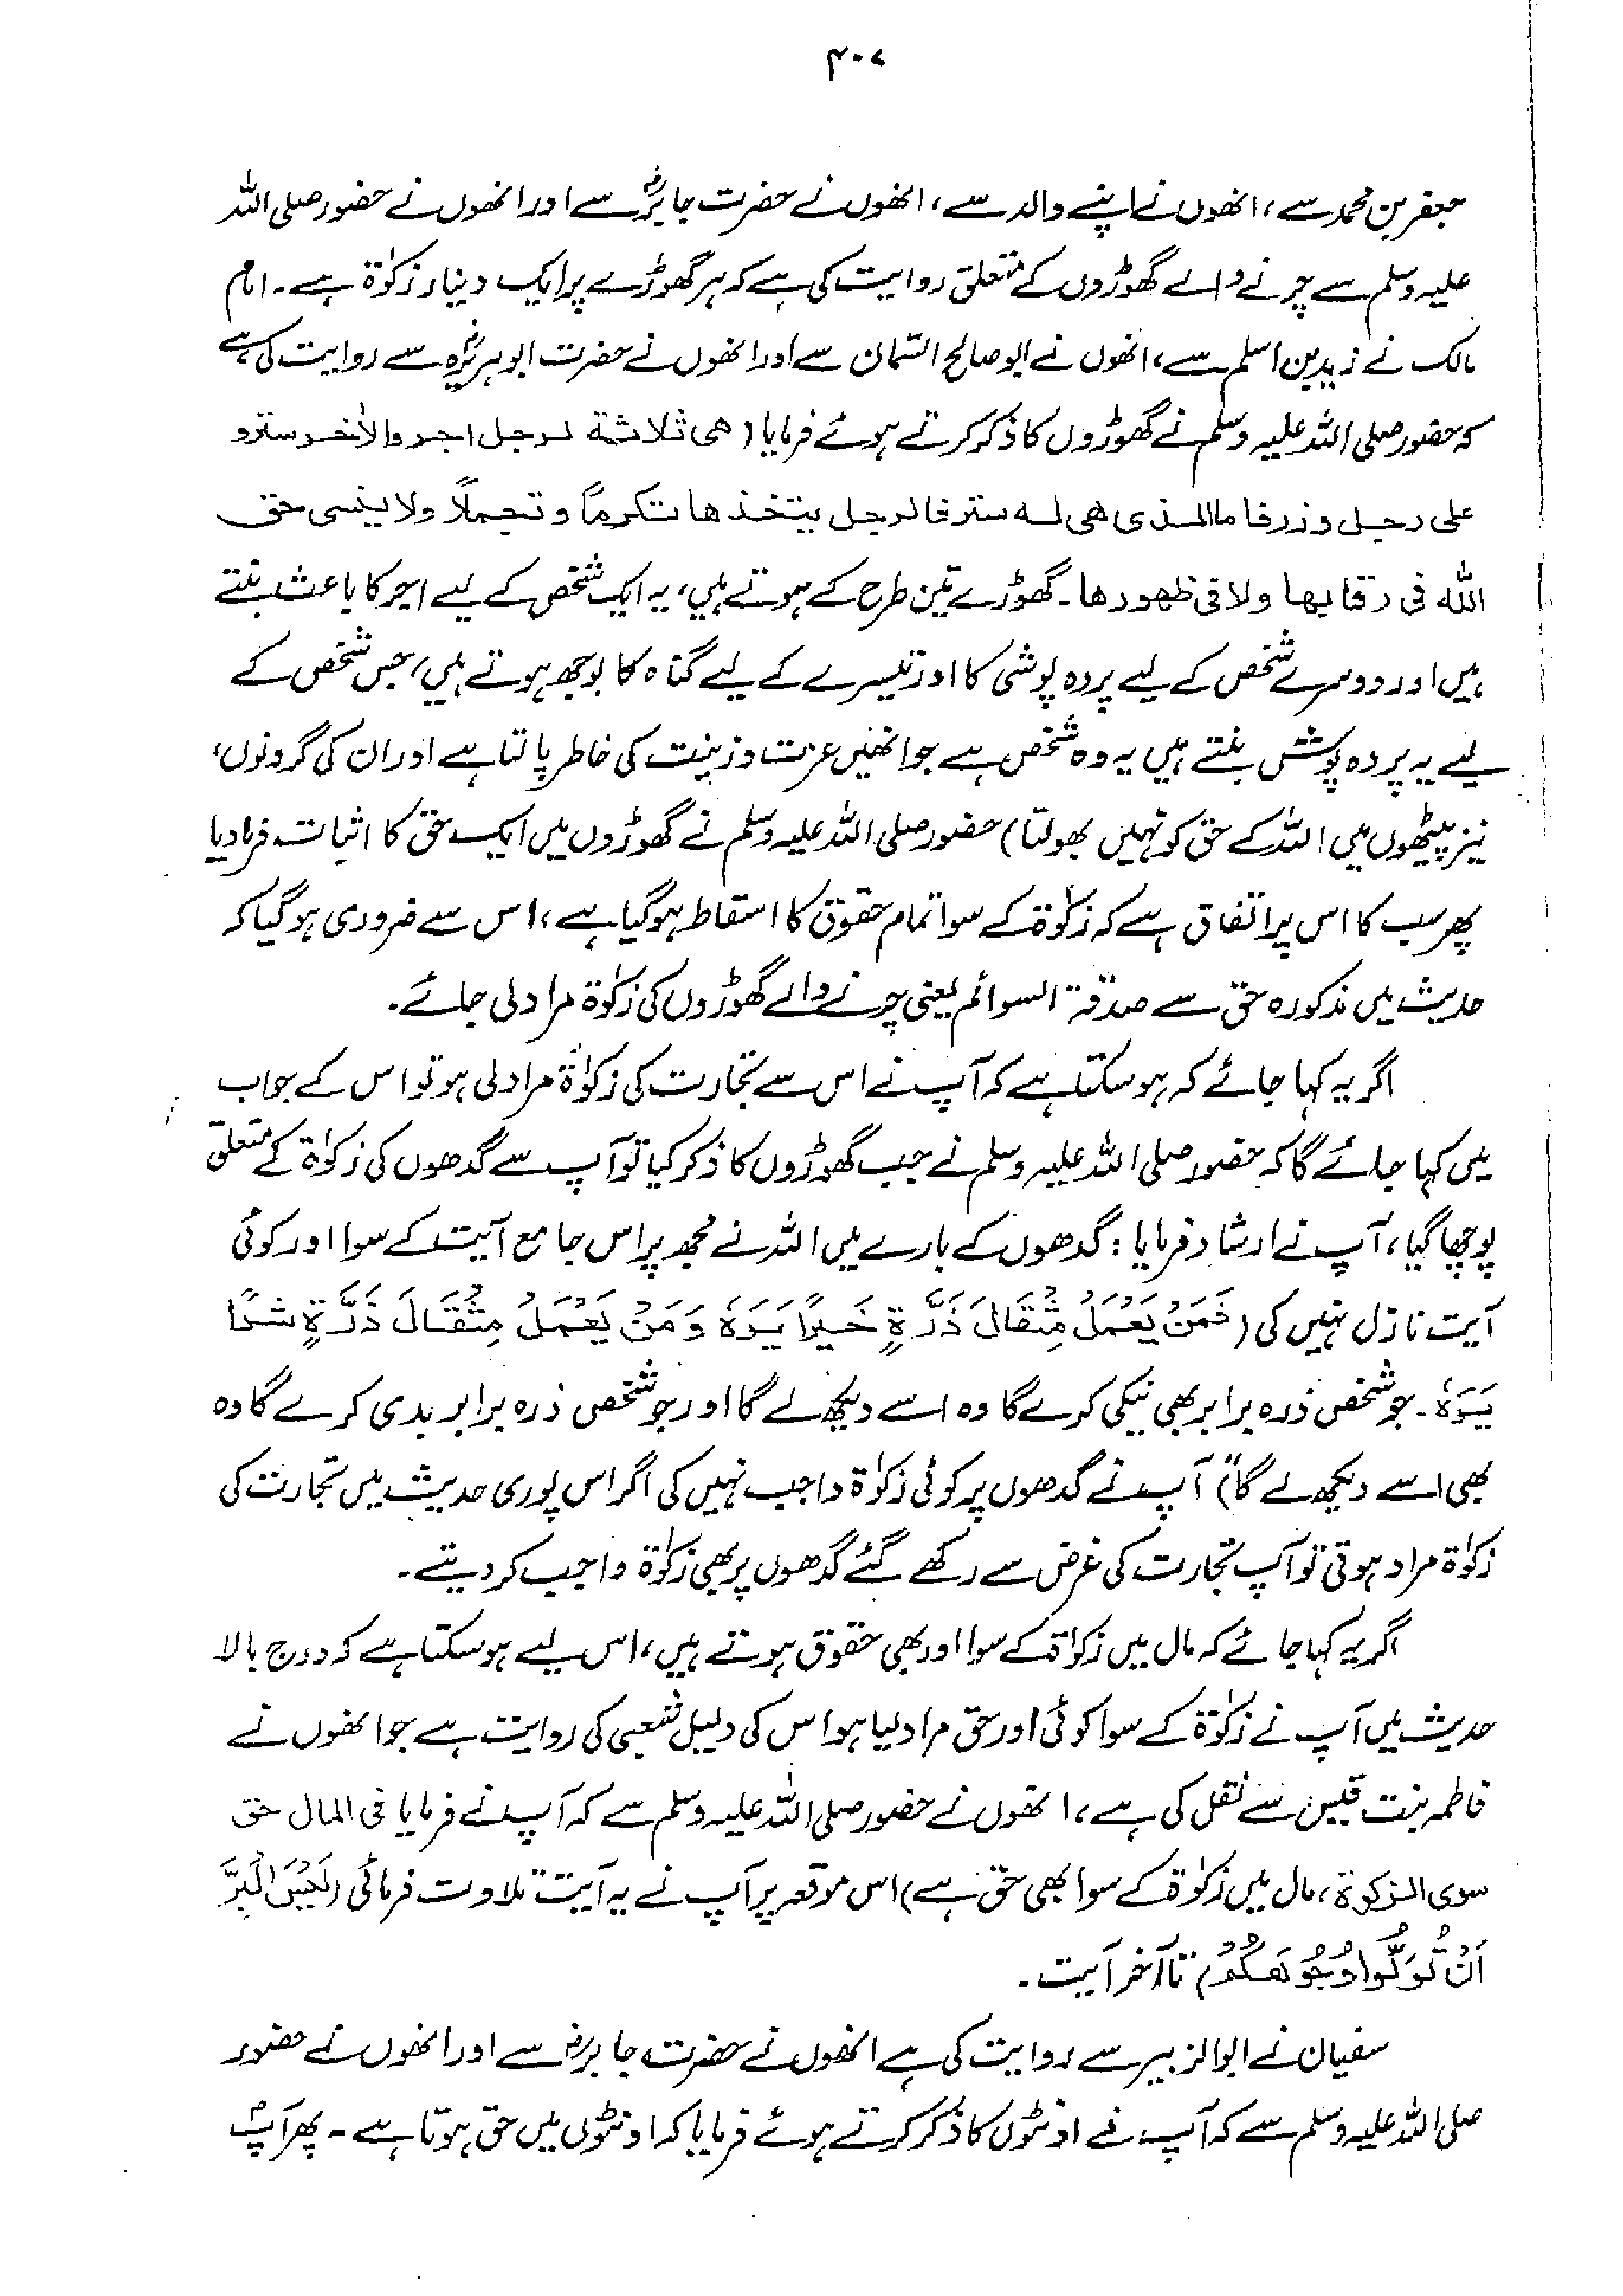 ۴۰۷
جعفر بن محمد سے، انھوں نے اپنے والد سے، انھوں نے حضرت جابرؓ سے اور انھوں نے حضور صلی اللہ
علیہ وسلم سے چرنے والے گھوڑوں کے متعلق روایت کی ہے کہ ہر گھوڑے پر ایک دینار زکوٰۃ ہے۔ امام
مالک نے زید بن اسلم سے، انھوں نے ابوصالح السّمان سے اور انھوں نے حضرت ابوہریرہؓ سے روایت کی ہے
کہ حضور صلی اللہ علیہ وسلم نے گھوڑوں کا ذکر کرتے ہوئے فرمایا (ھی ثلاثۃ لرجل اجر والاٰخر ستر و
علی رجل وزر فاما الذی ھی لہ ستر فالرجل یتخذھا تکرماً و تجملاً ولا ینسی حق
اللہ فی رقابھا ولا فی ظھورھا۔ گھوڑے تین طرح کے ہوتے ہیں، یہ ایک شخص کے لیے اجر کا باعث بنتے
ہیں اور دوسرے شخص کے لیے پردہ پوشی کا اور تیسرے کے لیے گناہ کا بوجھ ہوتے ہیں، جس شخص کے
لیے یہ پردہ پوش بنتے ہیں یہ وہ شخص ہے جو انھیں عزت و زینت کی خاطر پالتا ہے اور ان کی گردنوں،
نیز پیٹھوں میں اللہ کے حق کو نہیں بھولتا) حضور صلی اللہ علیہ وسلم نے گھوڑوں میں ایک حق کا اثبات فرمادیا
پھر سب کا اس پر اتفاق ہے کہ زکوٰۃ کے سوا تمام حقوق کا اسقاط ہوگیا ہے، اس سے ضروری ہوگیا کہ
حدیث میں مذکورہ حق سے صدقۃ السوائم یعنی چرنے والے گھوڑوں کی زکوٰۃ مراد لی جائے۔
اگر یہ کہا جائے کہ ہوسکتا ہے کہ آپ نے اس سے تجارت کی زکوٰۃ مراد لی ہو تو اس کے جواب
میں کہا جائے گا کہ حضور صلی اللہ علیہ وسلم نے جب گھوڑوں کا ذکر کیا تو آپ سے گدھوں کی زکوٰۃ کے متعلق
پوچھا گیا، آپ نے ارشاد فرمایا : گدھوں کے بارے میں اللہ نے مجھ پر اس جامع آیت کے سوا اور کوئی
آیت نازل نہیں کی (فَمَنْ یَعْمَلْ مِثْقَالَ ذَرَّۃٍ خَیْرًا یَرَہٗ وَمَنْ یَعْمَلْ مِثْقَالَ ذَرَّۃٍ شَرًّا
یَرَہٗ۔ جو شخص ذرہ برابر بھی نیکی کرے گا وہ اسے دیکھ لے گا اور جو شخص ذرہ برابر بدی کرے گا وہ
بھی اسے دیکھ لے گا") آپ نے گدھوں پر کوئی زکوٰۃ واجب نہیں کی اگر اس پوری حدیث میں تجارت کی
زکوٰۃ مراد ہوتی تو آپ تجارت کی غرض سے رکھے گئے گدھوں پر بھی زکوٰۃ واجب کردیتے۔
اگر یہ کہا جائے کہ مال میں زکوٰۃ کے سوا اور بھی حقوق ہوتے ہیں، اس لیے ہوسکتا ہے کہ درج بالا
حدیث میں آپ نے زکوٰۃ کے سوا کوئی اور حق مراد لیا ہو اس کی دلیل شعبی کی روایت ہے جو انھوں نے
فاطمہ بنت قیس سے نقل کی ہے، انھوں نے حضور صلی اللہ علیہ وسلم سے کہ آپ نے فرمایا فی المال حق
سوی الزکوۃ، مال میں زکوٰۃ کے سوا بھی حق ہے) اس موقعہ پر آپ نے یہ آیت تلاوت فرمائی (لَیْسَ الْبِرَّ
اَنْ تُوَلُّوْا وُجُوْھَکُمْ) تا آخر آیت۔
سفیان نے ابوالزبیر سے روایت کی ہے انھوں نے حضرت جابرؓ سے اور انھوں نے حضور
صلی اللہ علیہ وسلم سے کہ آپ نے اونٹوں کا ذکر کرتے ہوئے فرمایا کہ اونٹوں میں حق ہوتا ہے۔ پھر آپؐ